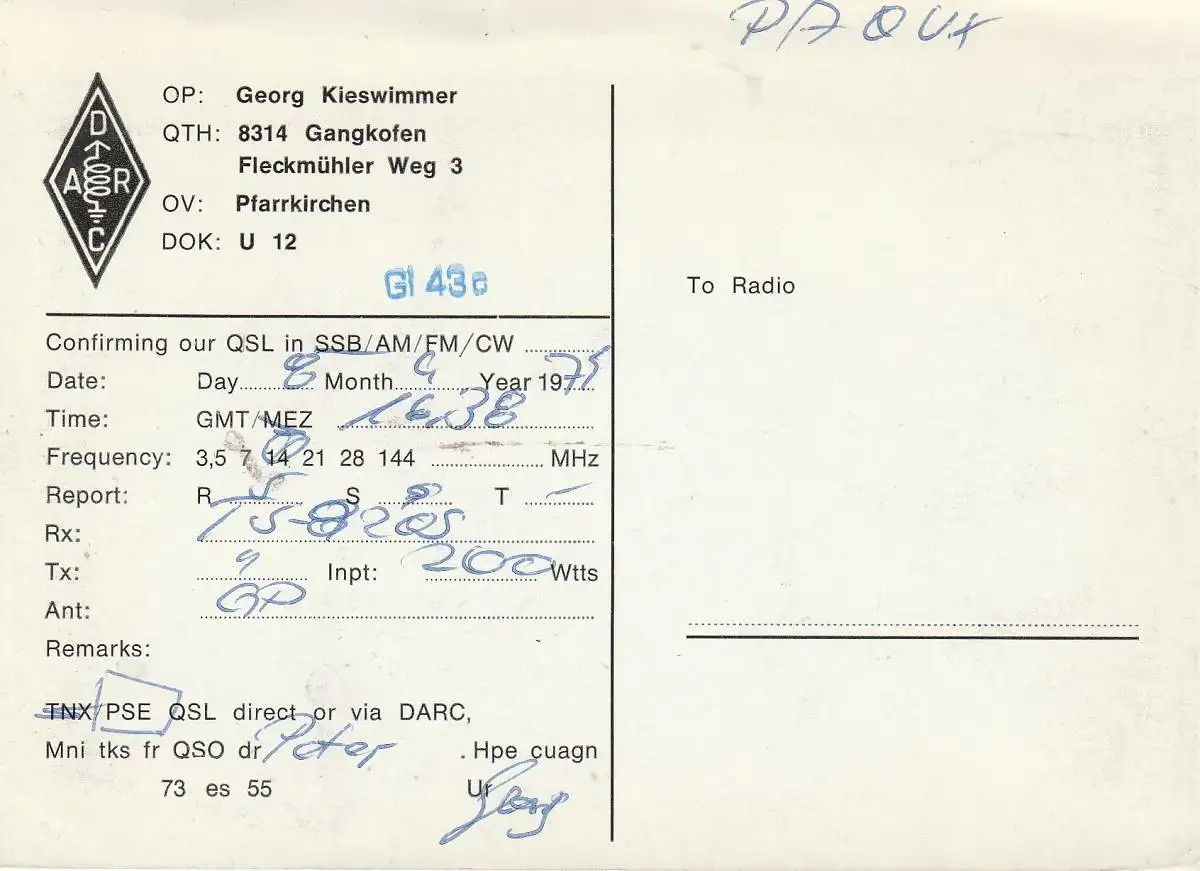 PAQUX
D
A R
C
OP: Georg Kieswimmer
QTH: 8314 Gangkofen
Fleckmühler Weg 3
OV: Pfarrkirchen
DOK: U 12
GI 43c
To Radio
Confirming our QSL in SSB/AM/FM/CW
Date: Day 8 Month 4 Year 1975
Time: GMT/MEZ 16,38
Frequency: 3,5 7 14 21 28 144 MHz
Report: R 5 S 8 T –
Rx: TS-820S
Tx: " Inpt: 200 Wtts
Ant: GP
Remarks:
TNX/PSE QSL direct or via DARC,
Mni tks fr QSO dr Peter . Hpe cuagn
73 es 55 Ur Georg